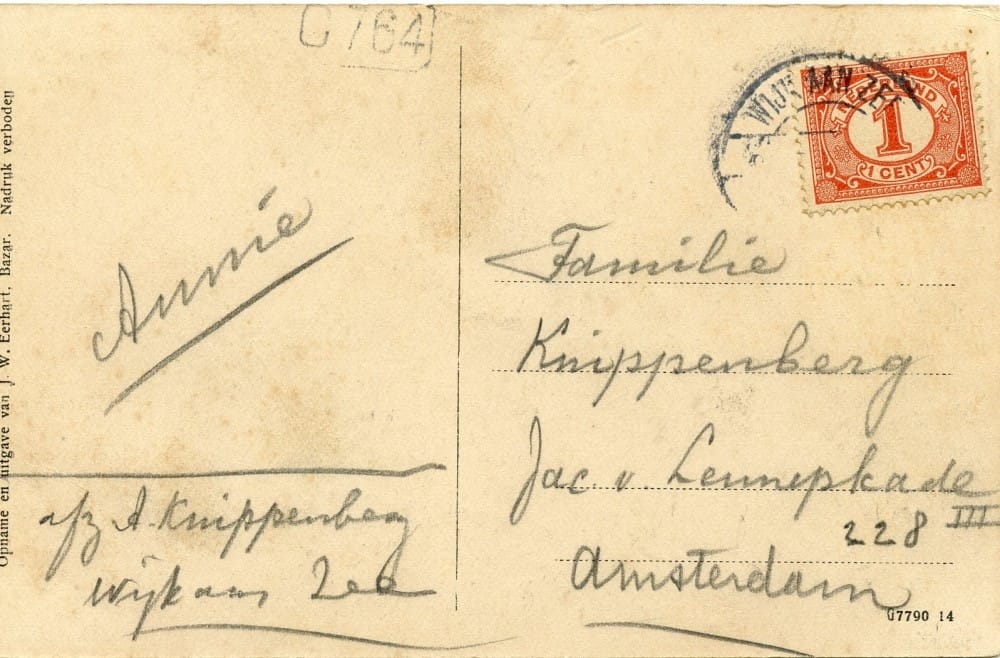 G 764
Opname en uitgave van J. W. Eerhart, Bazar. Nadruk verboden
Annie
afz A. Knippenberg
Wijk aan Zee
WIJK AAN ZEE
NEDERLAND
1
1 CENT
Familie
Knippenberg
Jac v. Lennepkade
228 III
Amsterdam
G7790 14